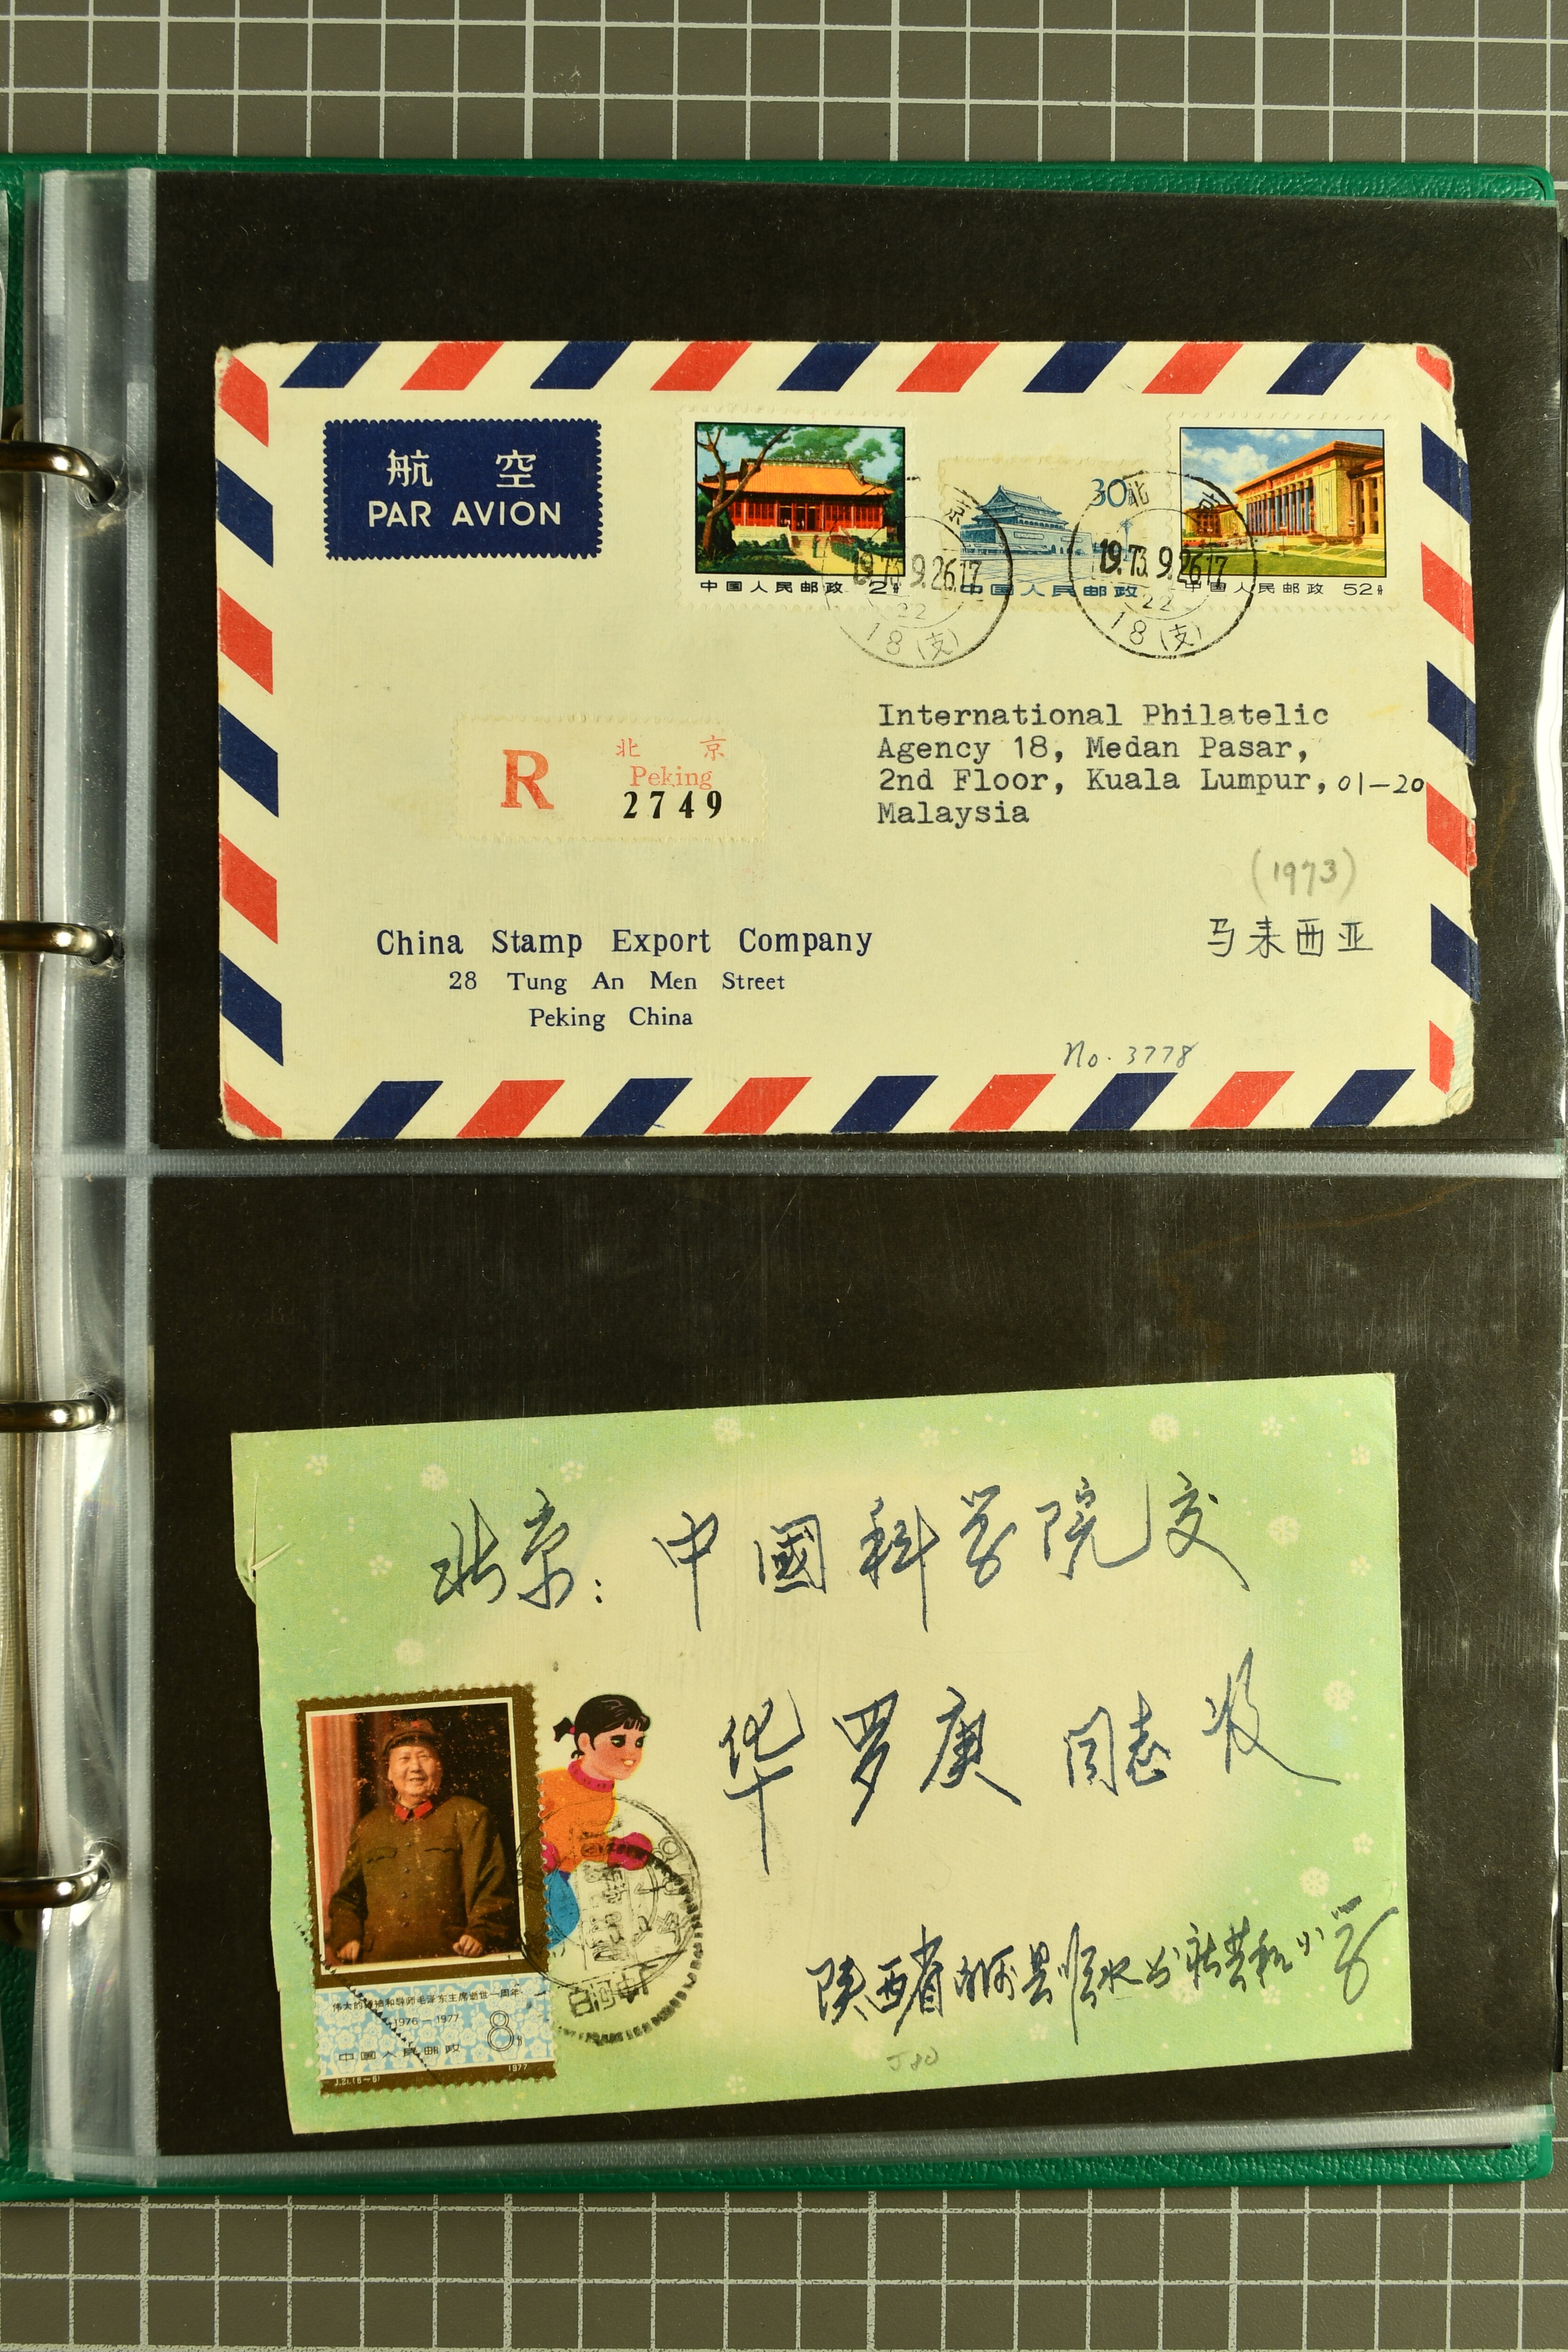 航 空
PAR AVION
中国人民邮政 2分
30
中国人民邮政
中国人民邮政 52分
京
1973.9.26.17
22
18(支)
北 京
1973.9.26.17
22
18(支)
R
北 京
Peking
2749
International Philatelic
Agency 18, Medan Pasar,
2nd Floor, Kuala Lumpur, 01-20
Malaysia
(1973)
马来西亚
China Stamp Export Company
28 Tung An Men Street
Peking China
No. 3778
北京: 中國科学院交
华罗庚 同志 收
伟大的领袖和导师毛泽东主席逝世一周年
1976-1977
8分
中国人民邮政
J.21.(6-6)
1977
白河
陕西省白河县 水公社 小学
J80